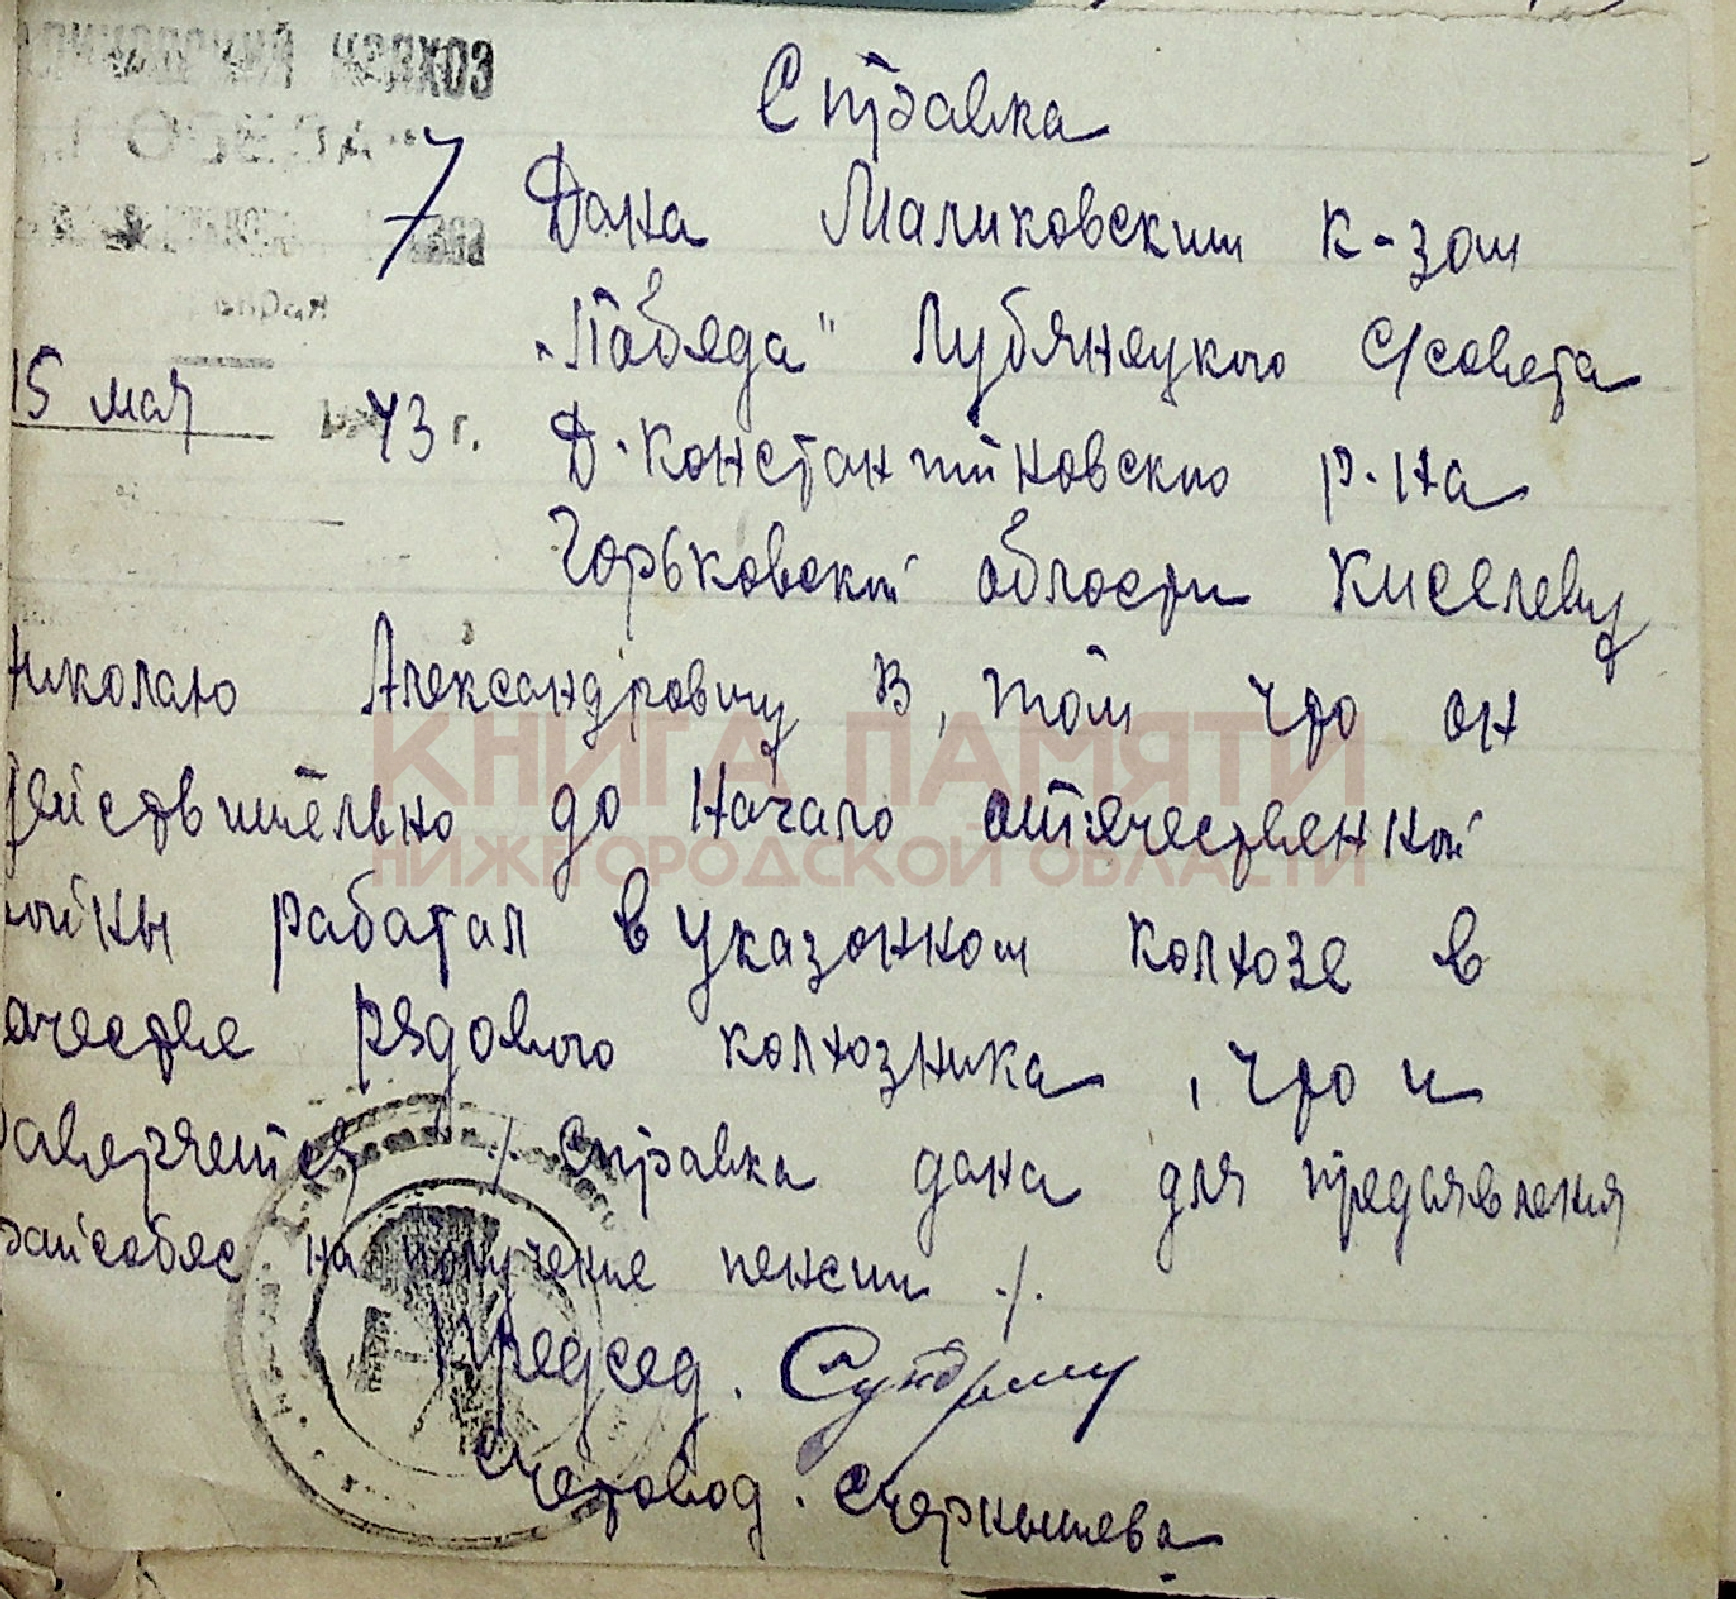 Справка
7 Дана Маликовским к-зом
„Пабяда" Лубянецкого с/совета
15 мая 43 г. Д-Константиновско р-на
Горьковской области Киселеву
Николаю Александровичу В, том что он
действительно до начало отячественной
войны работал в указанном колхозе в
качестве рядового колхозника, что и
заверяется / Справка дана для предъявления
райсобес на получение пенсии /.
Председ.
Счетовод. Счернышева
КНИГА ПАМЯТИ
НИЖЕГОРОДСКОЙ ОБЛАСТИ